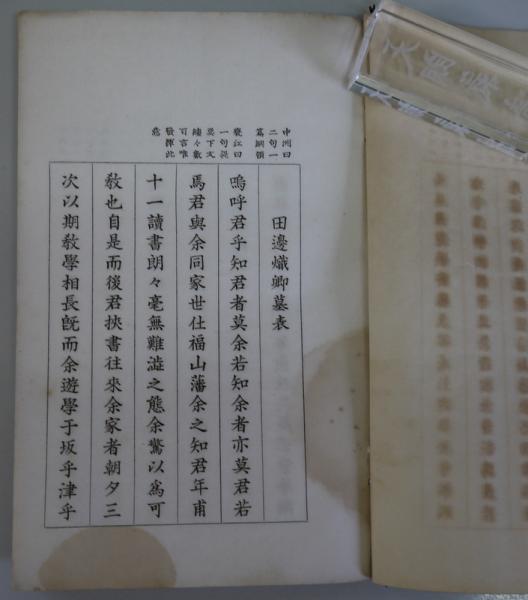 中洲曰
二句一
篇綱領
甕江曰
一句提
異下文
縷々數
百言唯
發揮此
意
田邊熾卿墓表
嗚呼君乎知君者莫余若知余者亦莫君若
馬君與余同家世仕福山藩余之知君年甫
十一讀書朗々毫無難澁之態余驚以爲可
敎也自是而後君挾書往來余家者朝夕三
次以期敎學相長旣而余遊學于坂乎津乎